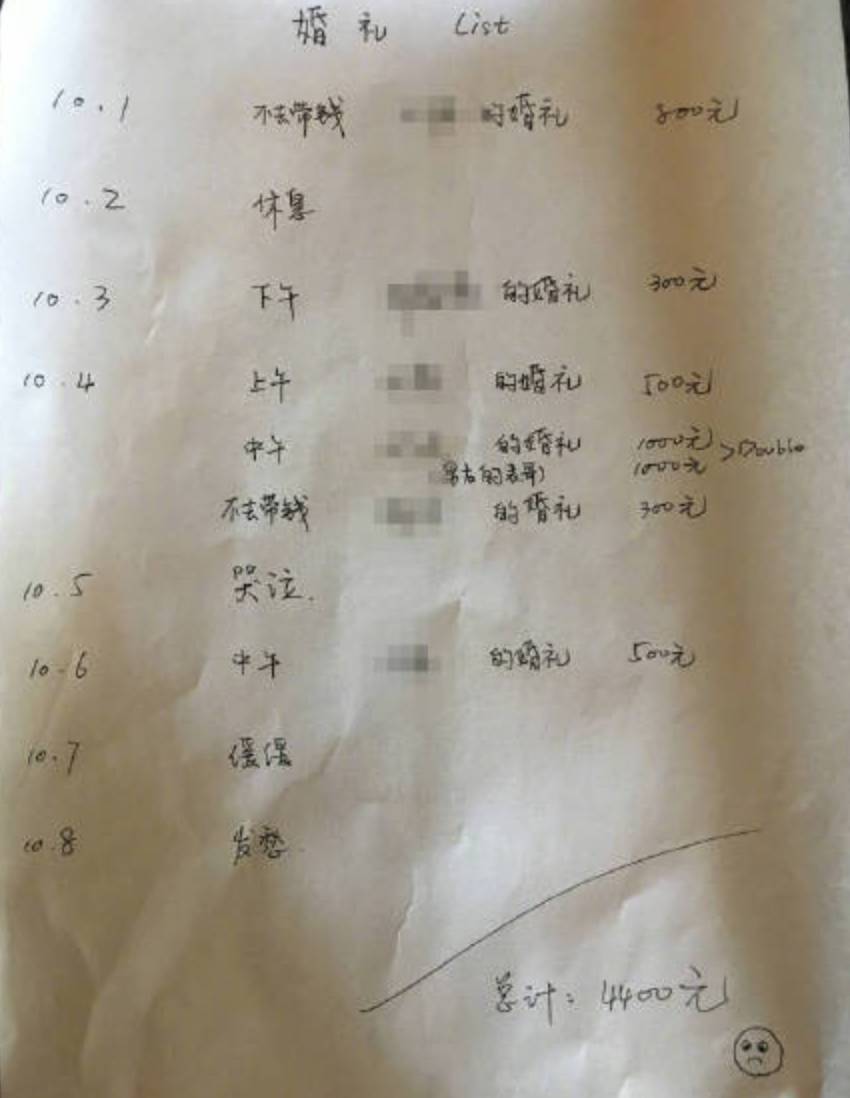 婚礼 List
10.1 不去带钱 的婚礼 800元
10.2 休息
10.3 下午 的婚礼 300元
10.4 上午 的婚礼 500元
中午 的婚礼 1000元 >Double
男友的表哥) 1000元
不去带钱 的婚礼 300元
10.5 哭泣.
10.6 中午 的婚礼 500元
10.7 缓缓
10.8 发愁.
总计: 4400元